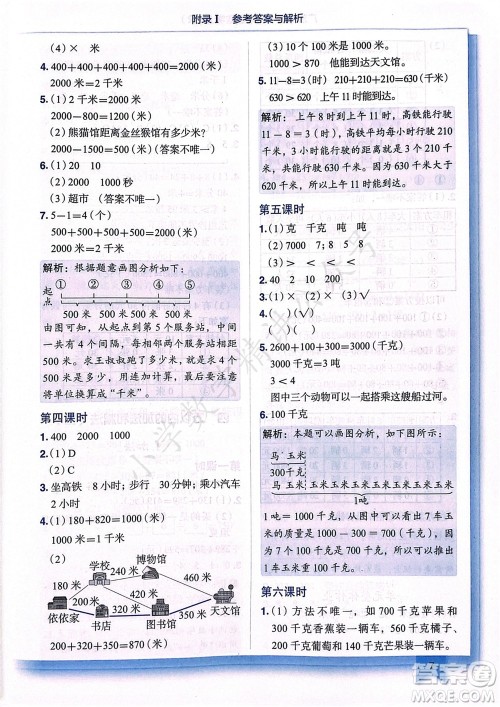 附录Ⅰ 参考答案与解析
(4)× 米
4. 400+400+400+400+400=2000(米)
2000米=2千米
5. (1)2千米=2000米
2000-800=1200(米)
(2)熊猫馆距离金丝猴馆有多少米?
1800-1200=600(米)(答案不唯一)
6. (1)20 10
(2)1000 1000秒
(3)超市(答案不唯一)
7. 5-1=4(个)
500+500+500+500=2000(米)
2000米=2千米
解析:根据题意画图分析如下:
① ② ③ ④ ⑤
起点
500米 500米 500米 500米
由图可知,从起点到第5个服务站,中间有4个间隔,每两个服务站相距500米。求王叔叔跑了多少千米,用连加计算,最后根据“1千米=1000米”,将单位换算成“千米”。
第四课时
1. 400 2000 1000
2. (1)D (2)D
3. 坐高铁 8小时;步行 30分钟;乘小汽车
2小时
4. (1)180+820=1000(米)
(2)
学校 博物馆
240米 460米
180米 350米 380米
400米
依依家 书店 图书馆 天文馆
200+320+350=870(米)
1000>870
1000米>870米
他们能到达天文馆。
5. 11-8=3(时) 210+210+210=630(千米)
630千米>600千米 上午11时能到达。
解析:上午8时到上午11时,高铁能行驶
11-8=3(时),高铁平均每小时行驶210
千米,3小时能行驶的距离就是3个210
千米,是630千米。因为630千米>600
千米,所以上午11时能到达。
第五课时
1. (1)克 千克 吨 吨
(2)7000 7;8 5
(3)> = < >
2. 40 2 200
3. (1)( ) (√)
(2)( ) (√)
4. (1)√ (2)× (3)×
5. 2600+100+300=3000(千克)
3000千克=3吨
3<4
图中三个动物可以一起搭乘这艘船过河。
6. 100千克
解析:本题可以画图分析,如图所示:
300千克
1吨
1吨=1000千克,从图中可以看出7车玉
米的质量是1000-300=700(千克),7个
100千克是700千克,所以1车玉米的质
量是100千克。
第六课时
1. (1)方法不唯一,如700千克苹果和
300千克香蕉装一辆车,560千克橘子、
200千克葡萄和140千克芒果装一辆车,
小学数学精讲
答案圈
MXQE.COM